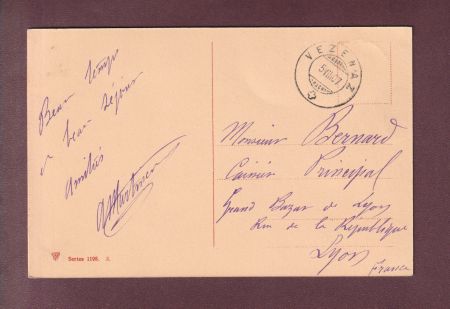 Beau temps
et beau séjour
Amitiés
VEZENAZ
Monsieur Bernard
Caissier Principal
Grand Bazar de Lyon
Rue de la République
Lyon
France
Series 1198.